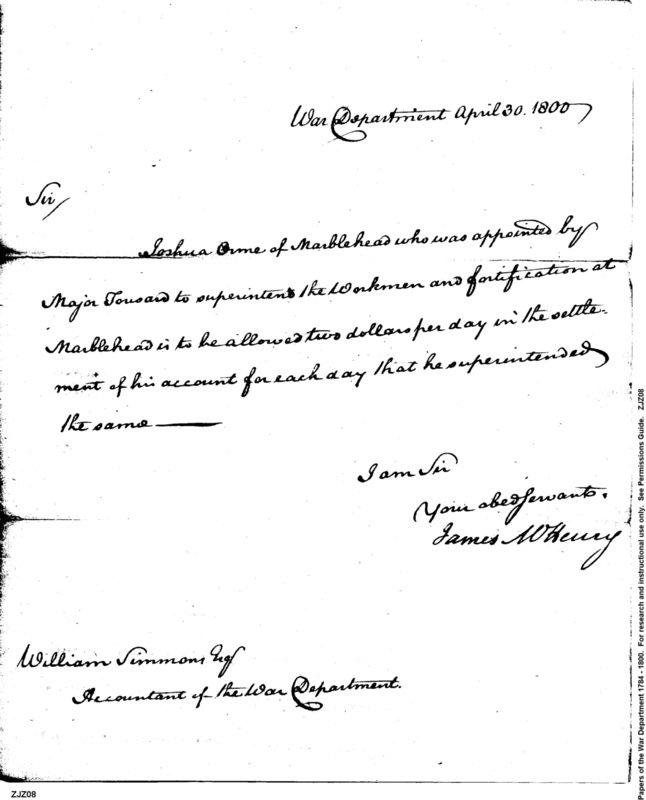 War Department April 30. 1800
Sir
Joshua Orne of Marblehead who was appointed by
Major Tousard to superintend the Workmen and fortification at
Marblehead is to be allowed two dollars per day in the settle-
ment of his account for each day that he superintended
the same
I am Sir
Your obed Servant.
James McHenry
William Simmons Esq
Accountant of the War Department.
ZJZ08
Papers of the War Department 1784 - 1800. For research and instructional use only. See Permissions Guide. ZJZ08